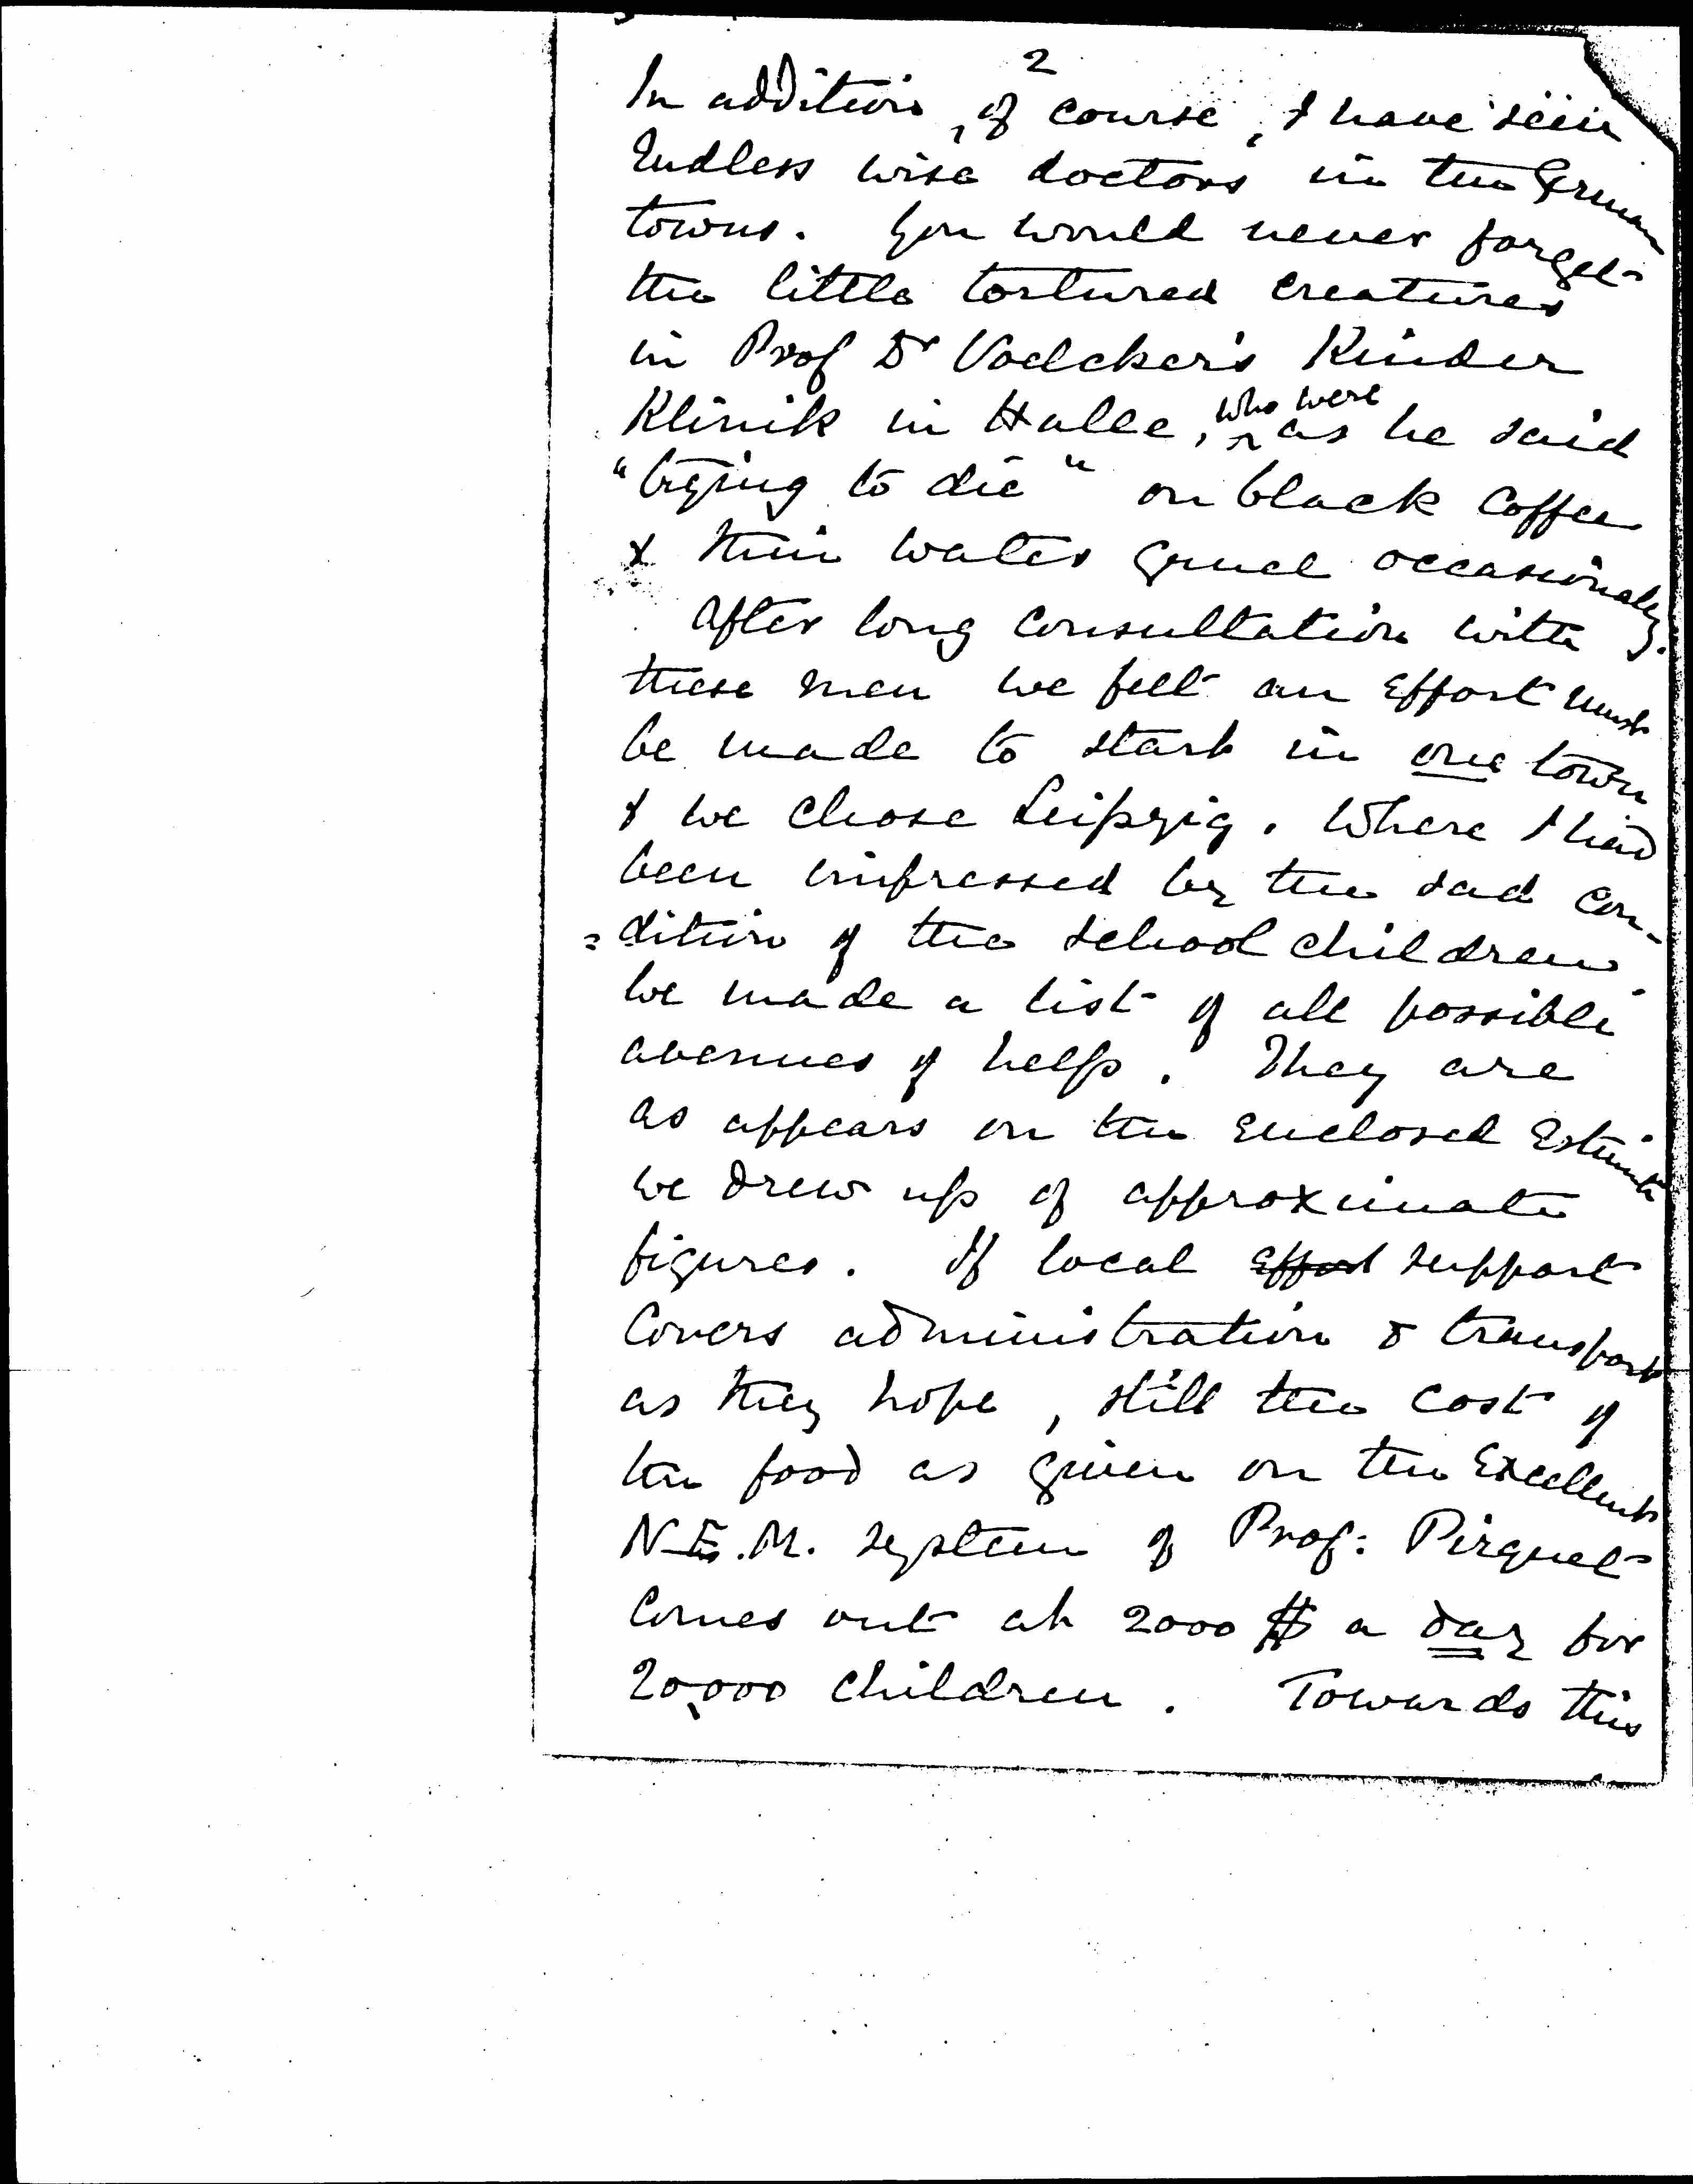 2
In addition, of course, I have seen
Endless wise doctors in the German
towns. You would never forget
the little tortured creatures
in Prof Dr Voelcker's Kinder
Klinik in Halle, who were as he said
"trying to die" on black coffee
& thin water gruel occasionally.
After long consultation with
these men we felt an Effort must
be made to start in one town
& we chose Leipzig. Where I had
been impressed by the sad con-
=dition of the school children.
We made a list of all possible
avenues of help. They are
as appears on the Enclosed Estimate
we drew up of approximate
figures. If local Effort support
Covers administration & transport
as they hope, still the cost of
the food as given on the Excellent
N.E.M. system of Prof: Pirquet
Comes out at 2000 $ a day for
20,000 children. Towards this